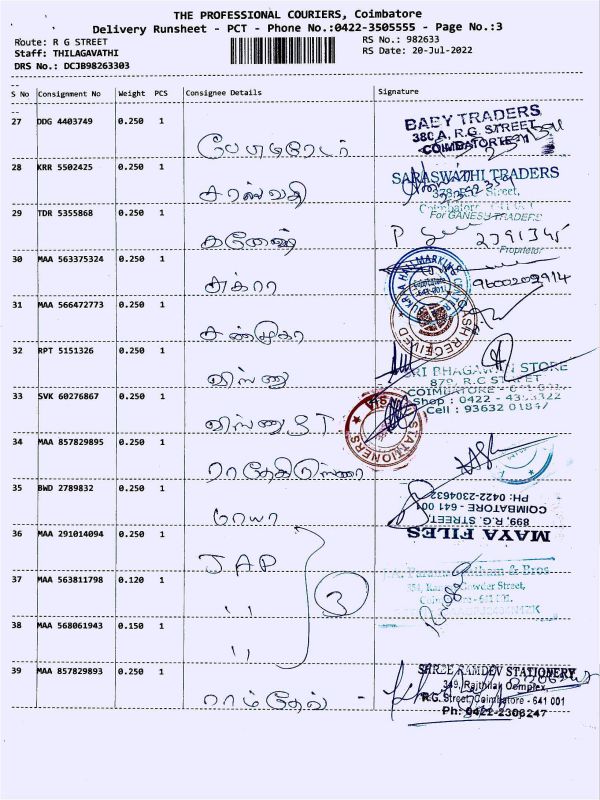 THE PROFESSIONAL COURIERS, Coimbatore
Delivery Runsheet - PCT - Phone No.:0422-3505555 - Page No.:3
Route: R G STREET
RS No.: 982633
Staff: THILAGAVATHI
RS Date: 20-Jul-2022
DRS No.: DCJB98263303
S No Consignment No Weight PCS Consignee Details Signature
27 DDG 4403749 0.250 1
BABY TRADERS
380 A, R.G. STREET
COIMBATORE
28 KRR 5502425 0.250 1 சரஸ்வதி
SARASWATHI TRADERS
Street,
29 TDR 5355868 0.250 1 கணேஷ்
For GANESH TRADERS
2391345
Proprietor
30 MAA 563375324 0.250 1 சுக்ரா
HALLMARKING
641 001
9600209914
31 MAA 566472773 0.250 1 சண்முகா
CASH RECEIVED
32 RPT 5151326 0.250 1 விஸ்ணு
SRI BHAGAWAN STORE
879, R.C STREET
COIMBATORE - 641 001
Shop : 0422 -
Cell : 93632 01847
33 SVK 60276867 0.250 1 விஸ்ணு ST
STATIONERS
34 MAA 857829895 0.250 1
35 BWD 2789832 0.250 1 மாயா
MAYA FILES
899, R.G. STREET,
COIMBATORE - 641 001
PH: 0422-2304632
36 MAA 291014094 0.250 1 JAP
& Bros
Gowder Street,
37 MAA 563811798 0.120 1 ,,
3
38 MAA 568061943 0.150 1 ,,
39 MAA 857829893 0.250 1 ராம்தேவ் -
SHREE RAMDEV STATIONERY
349, Rajthilak Complex,
R.G. Street, Coimbatore - 641 001
Ph: 0422-2306247